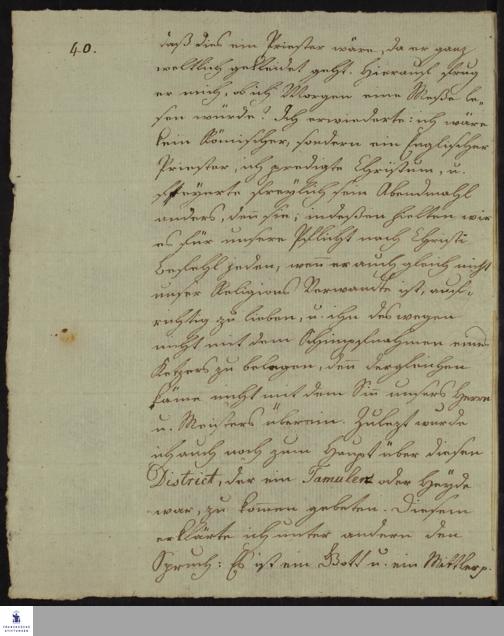 40.
daß dies ein Priester wäre, da er ganz
weltlich gekleidet geht. Hierauf frug
er mich, ob ich Morgen eine Meße le-
sen würde? Ich erwiederte: ich wäre
kein Römischer, sondern ein Englischer
Priester, ich predigte Christum, u.
feyerte freylich sein Abendmahl
anders, den sie; indeßen hielten wir
es für unsere Pflicht nach Christi
Befehl jeden, wenn er auch gleich nicht
unser Religions Verwandte ist, auf-
richtig zu lieben, u. ihn deswegen
nicht mit dem Schimpfnahmen eines
Ketzers zu belegen, denn dergleichen
käme nicht mit dem Sinn unsers Herrn
u. Meisters überein. Zulezt wurde
ich auch noch zum Haupt über diesen
District, der ein Tamuler oder Heyde
war, zu kommen gebeten. Diesem
erklärte ich unter andern den
Spruch: Es ist ein Gott u. ein Mittler p.
FRANCKESCHE
STIFTUNGEN